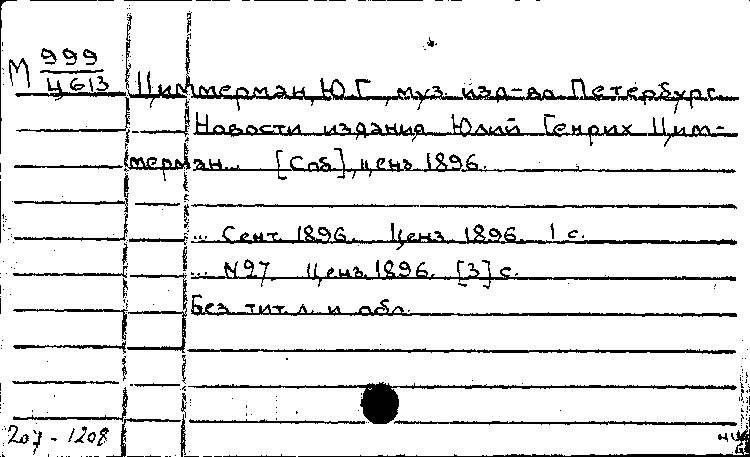 М 999
Ц613
Циммерман, Ю.Г., муз. изд-во. Петербург.
Новости издания Юлий Генрих Цим-
мерман... [Спб], ценз. 1896.
... Сент. 1896. Ценз. 1896. 1 с.
... №27. Ценз. 1896. [3] с.
Без тит. л. и обл.
207-1208